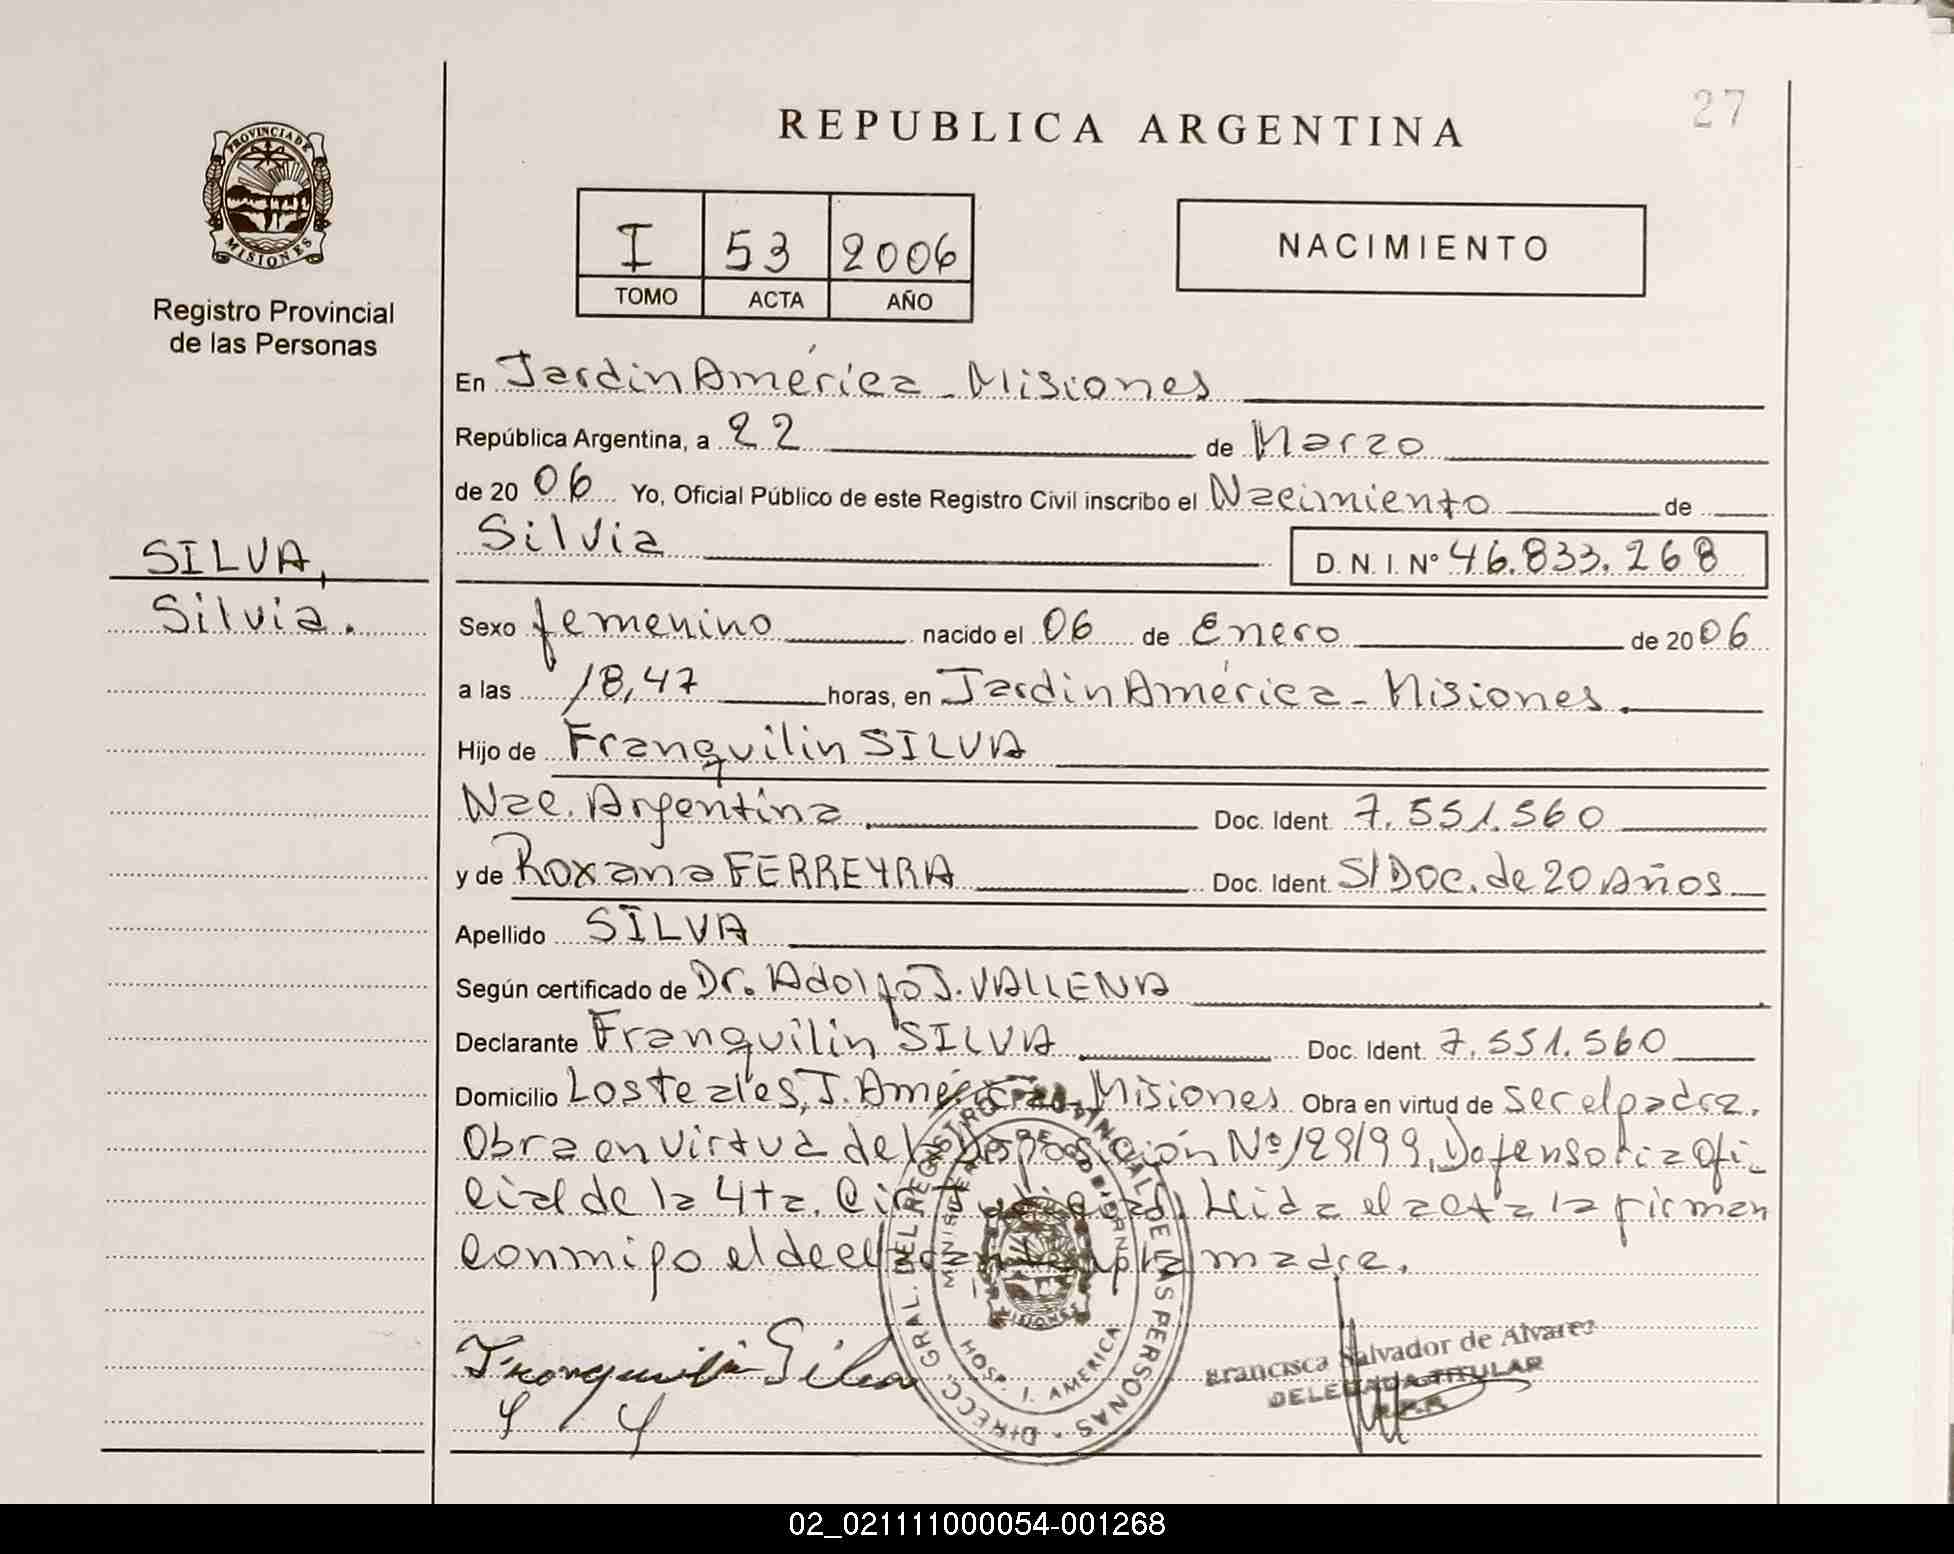 27
REPUBLICA ARGENTINA
PROVINCIA DE
MISIONES
Registro Provincial
de las Personas
I 53 2006
TOMO ACTA AÑO
NACIMIENTO
En Jardin América - Misiones
República Argentina, a 22 de Marzo
de 2006 Yo, Oficial Público de este Registro Civil inscribo el Nacimiento de
Silvia
D. N. I. Nº 46.833.268
SILVA,
Silvia.
Sexo femenino nacido el 06 de Enero de 2006
a las 18,47 horas, en Jardin América - Misiones.
Hijo de Franquilin SILVA
Nac. Argentina. Doc. Ident. 7.551.560
y de Roxana FERREYRA Doc. Ident. S/Doc. de 20 Años
Apellido SILVA
Según certificado de Dr. Adolfo J. VALLENA
Declarante Franquilin SILVA Doc. Ident. 7.551.560
Domicilio Los teales, J. América, Misiones Obra en virtud de ser el padre.
Obra en virtud de la Disposición Nº 129/99, Defensoria Ofi-
cial de la 4ta. Cir. Judicial. Leida el acta la firman
conmigo el declarante y la madre.
Franquilin Silva
DIRECC. GRAL. DEL REGISTRO PROVINCIAL DE LAS PERSONAS
MINISTERIO DE GOBIERNO
MISIONES
HOSP. J. AMERICA
Francisca Salvador de Alvarez
DELEGADA TITULAR
R.P.P.
02_021111000054-001268